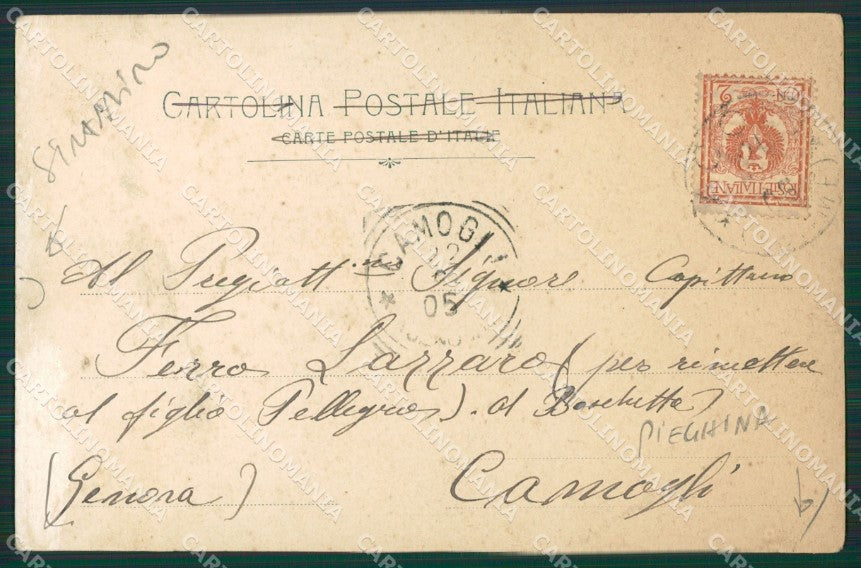 SEMARINO
CARTOLINA POSTALE ITALIANA
CARTE POSTALE D'ITALIE
2
POSTE ITALIANE
CAMOGLI
05
Al Pregiatt.mo Signore Capittano
Ferro Lazzaro (per rimettere
al figlio Pellegro). d Boschetto
PIEGHINA
(Genova) Camogli
CARTOLINOMANIA